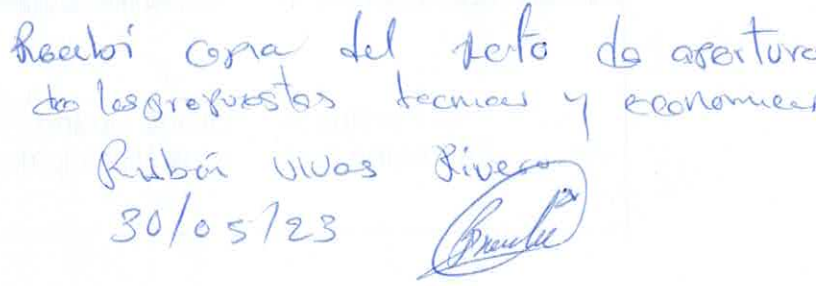 Recibi copia del acto de apertura
de las propuestas tecnicas y economicas
Rubén Vivas Rivera
30/05/23